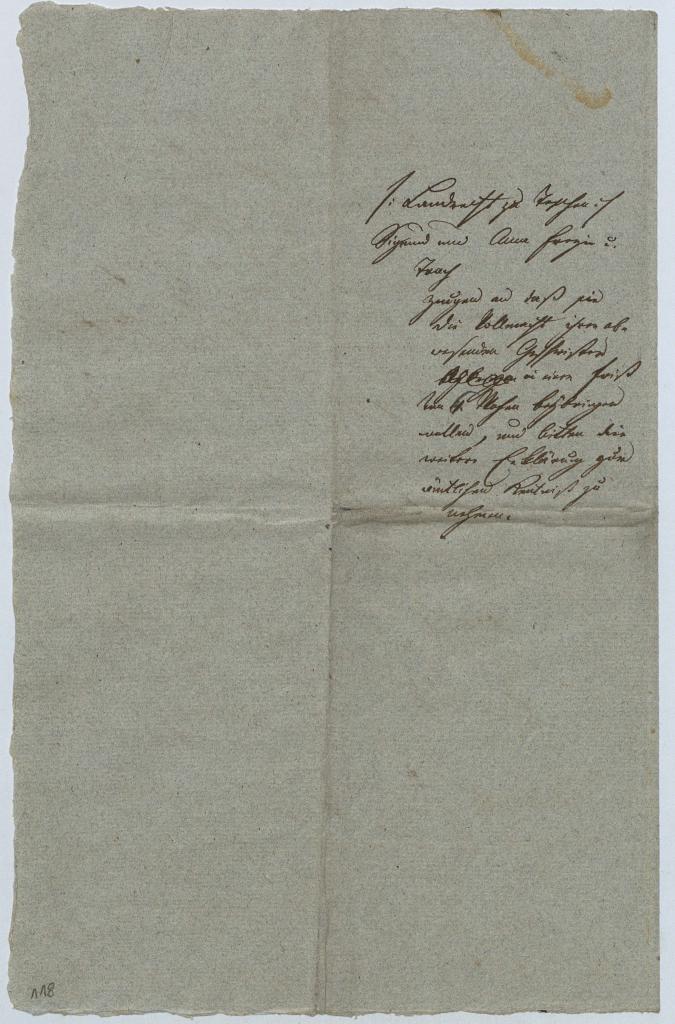 /: Landrecht zu Teschen :/
Sigmund und Anna Freyin v.
Trach
zeugen an daß sie
die Vollmacht ihrer ab-
wesenden Geschwister
in einer Frist
von 4 Wochen beybringen
wollen, und bitten diese
weitere Erklärung zur
amtlichen Kentniß zu
nehmen.
118